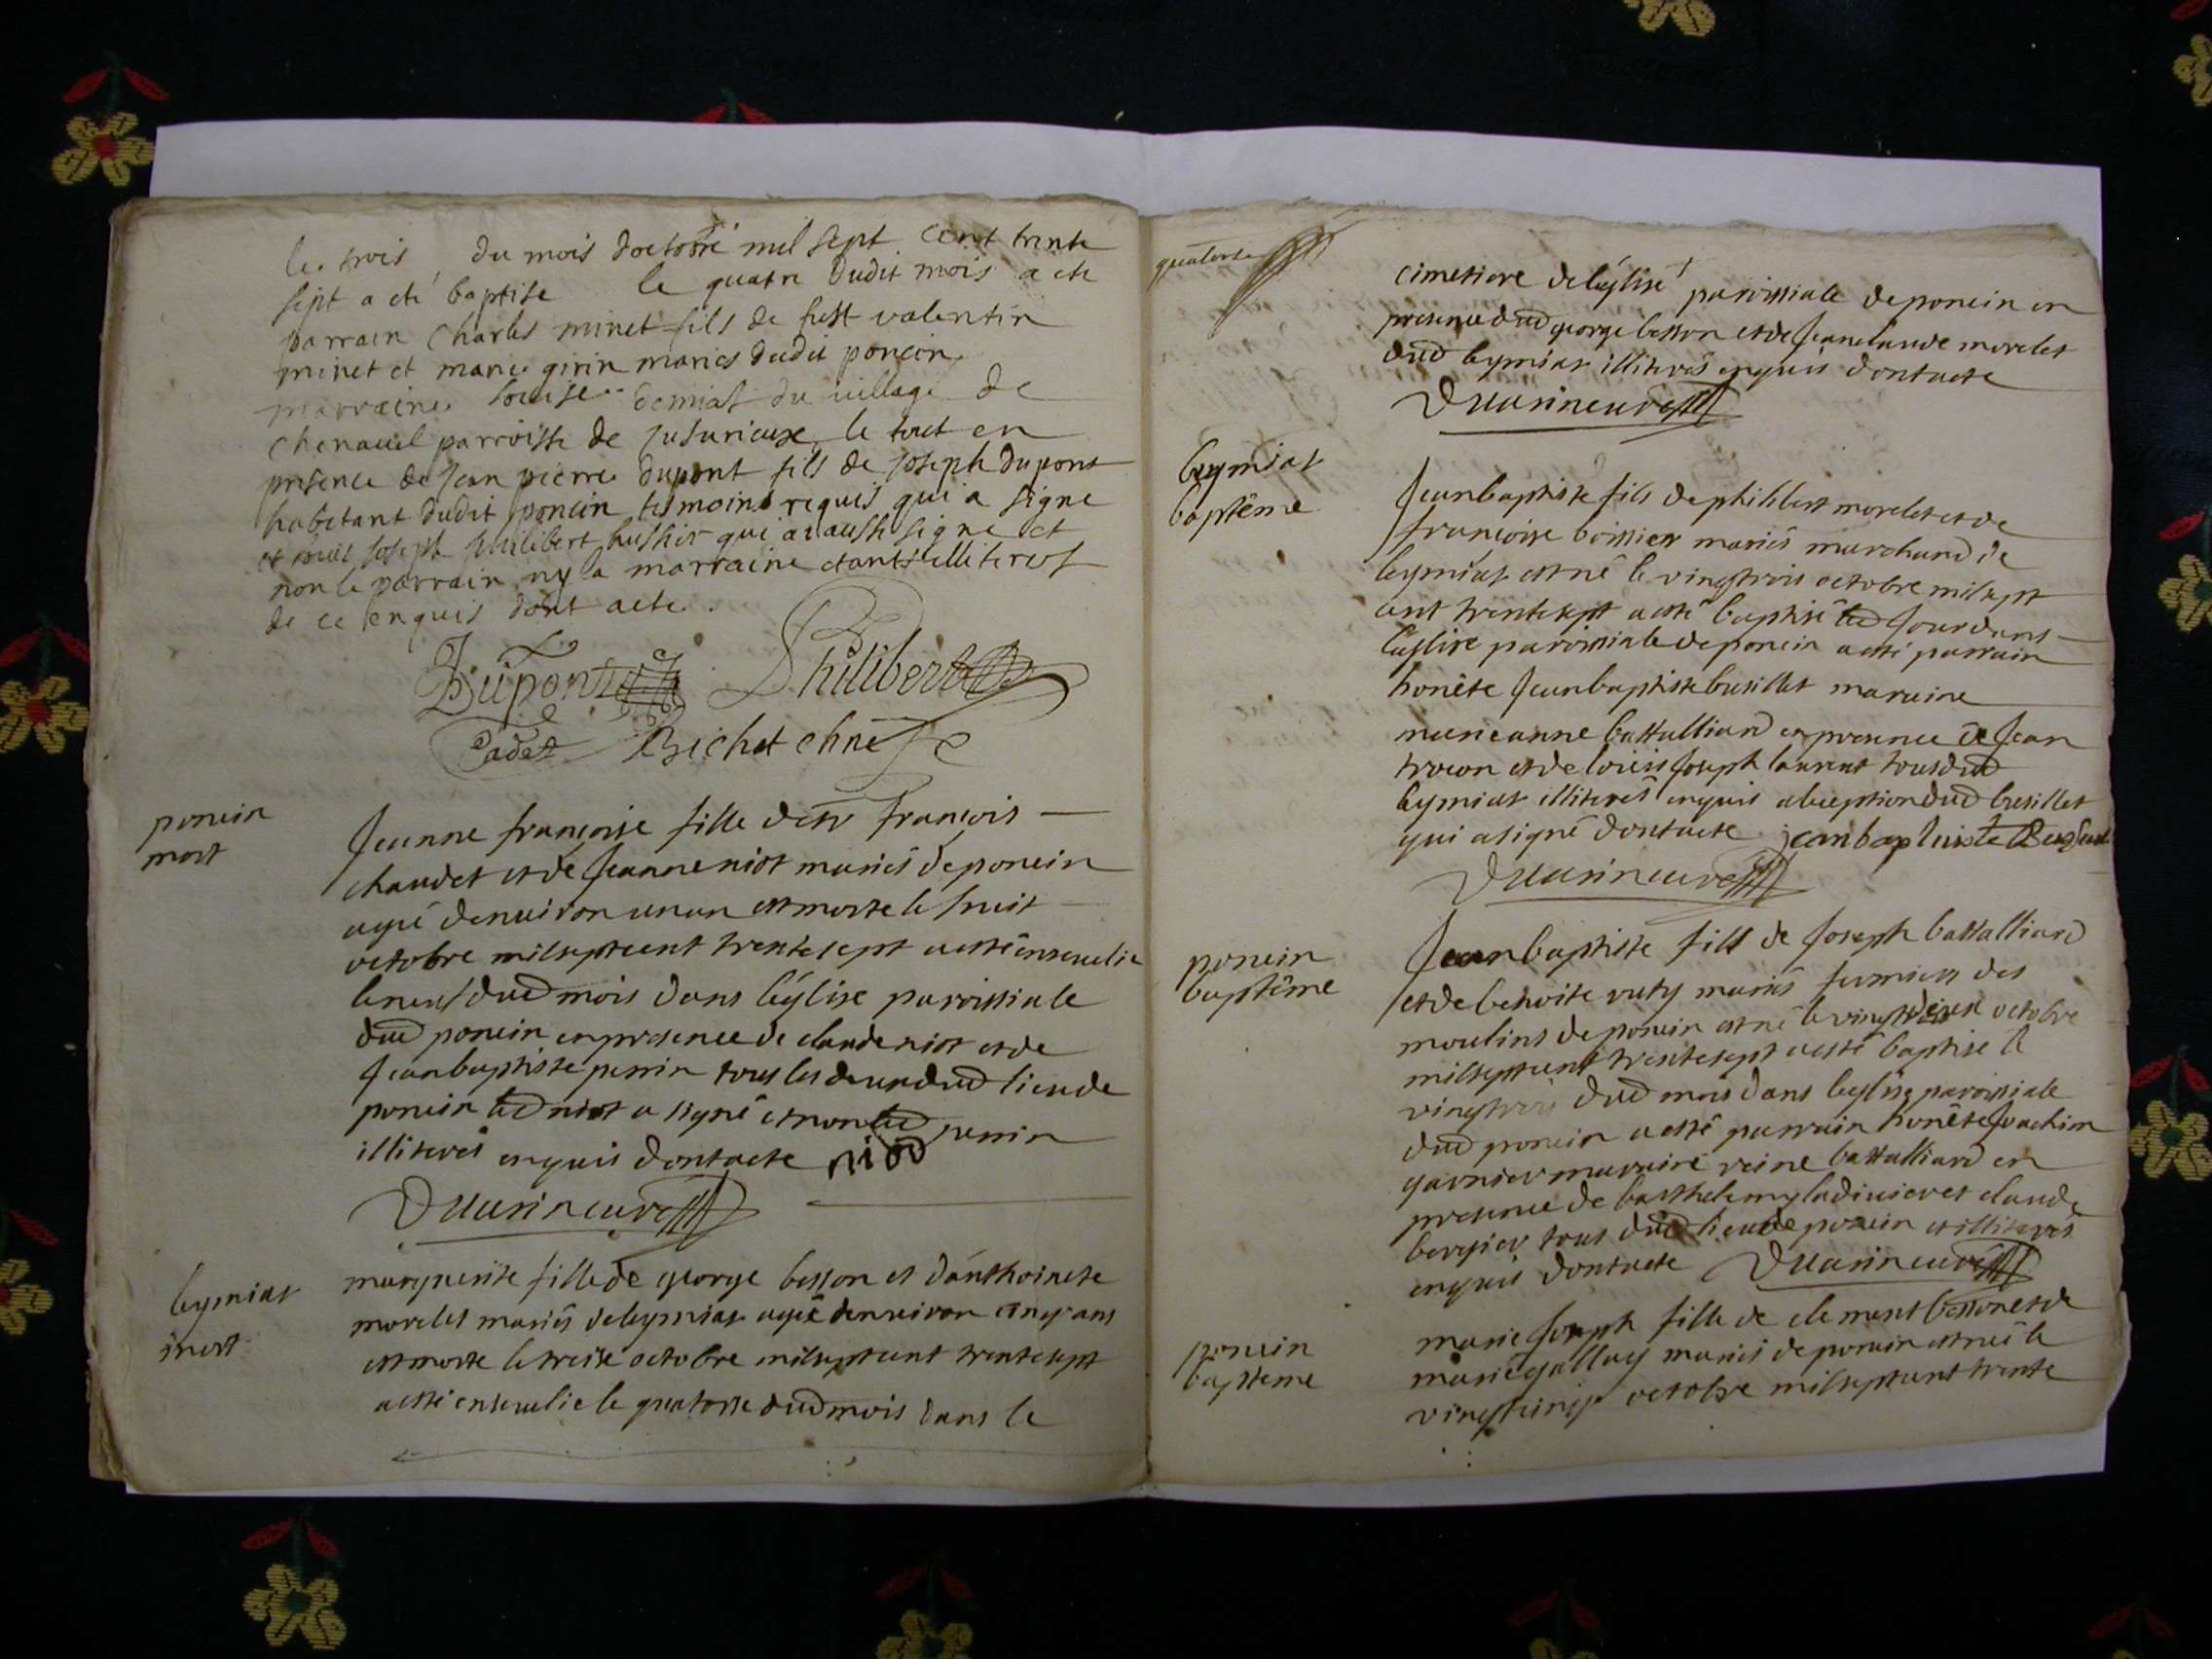 le trois du mois doctobre mil sept cent trente
sept a eté baptise le quatre dudit mois a ete
parrain Charles minet fils de fust valentin
minet et marie girin mariés dudit poncin
marraine louise demiat du village de
Chenavel parroisse de jusurieux le tout en
presence de jean pierre dupont fils de joseph dupont
habitant dudit poncin tesmoins requis qui a signe
et joseph philibert hussier qui a aussi signe et
non le parrain ny la marraine etants illiteres
de ce enquis dont acte.
Dupont Philibert
Cadet Bichet
poncin
mort
Jeanne françoise fille de sr françois
chaudet et de Jeanne niot mariés de poncin
agé denviron un an est morte le huit
octobre milseptcent trentesept a esté ensevelie
le neuf dud mois dans léglise paroissiale
dud poncin en presence de claude niot et de
Jeanbaptiste perrin tous les deux dud lieu de
poncin led niot a signé et non led perrin
illiterés enquis dont acte niod
leymiat
mort
marguerite fille de george besson et danthoinete
morelet mariés de leymiat agée denviron cinq ans
est morte le treize octobre milseptcent trentesept
a esté ensevelie le quatorse dud mois dans le
quatorse
cimetiere de léglise paroissiale de poncin en
presence dud george besson et de Jeanclaude morelet
dud leymiat illiterés enquis dont acte
leymiat
baptême
Jeanbaptiste fils de philibert morelet et de
françoise boissier mariés marchand de
leymiat est né le vingttrois octobre milsept
cent trentesept a esté baptisé led Jour dans
léglise paroissiale de poncin a esté parrain
honête Jeanbaptiste busillet maraine
marieanne battalliard en presence de Jean
trocon et de louis Joseph laurent tous dud
leymiat illiterés enquis a lexception dud busillet
qui a signé dont acte jean baptiste
poncin
baptême
Jeanbaptiste fils de Joseph battalliard
et de benoite ruty mariés fermiers des
moulins de poncin est né le vingtdeux octobre
milseptcent trentesept a esté baptisé le
vingttrois dud mois dans leglise paroissiale
dud poncin a esté parrain honête Joachim
garnier maraine reine battalliard en
presence de barthelemy ladivier et claude
bergier tous dud lieu de poncin et illiterés
enquis dont acte
poncin
bapteme
marie Joseph fille de clement besson et de
marie gallay mariés de poncin est née le
vingtcinq octobre milseptcent trente